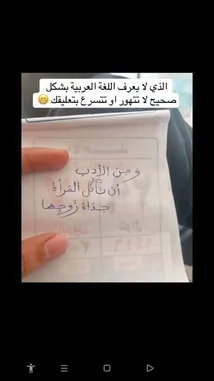 الذي لا يعرف اللغة العربية بشكل
صحيح لا تتهور او تتسرع بتعليقك 🤭
ومن الأدب
أن تأكل المرأة
حذاء زوجها